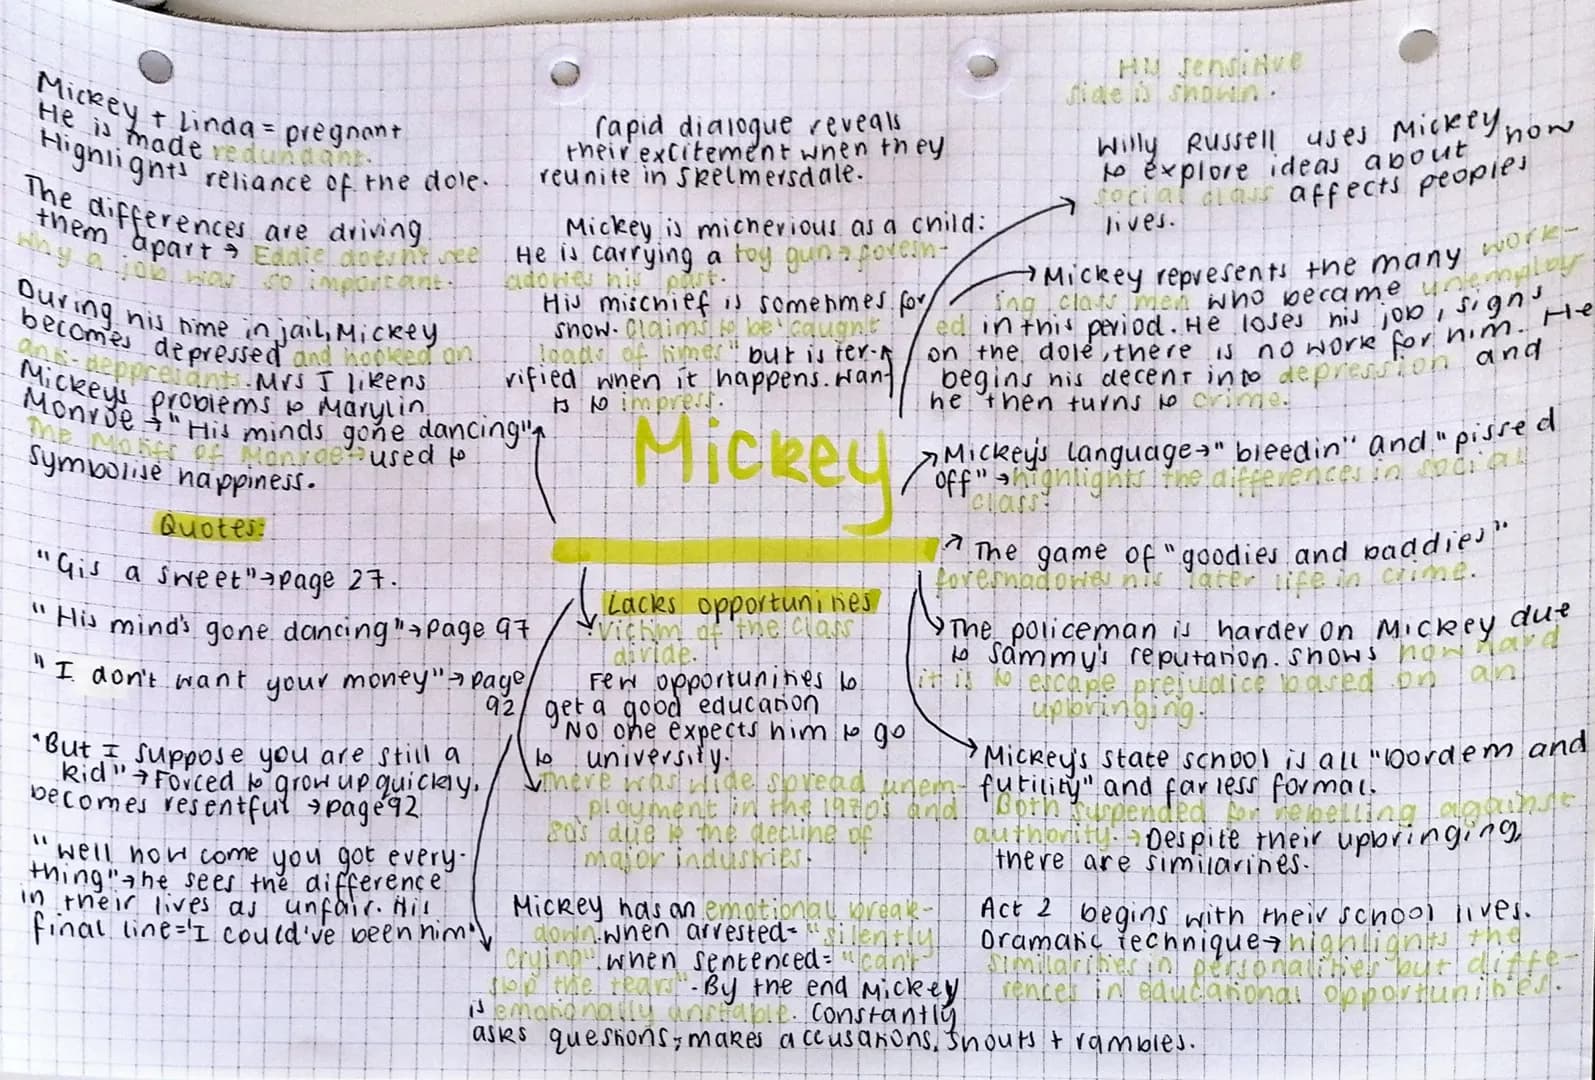 Mickey + Linda = pregnant
He is made redundant.
Highlights reliance of the dole.
The differences are driving
them apart → Eddie doesn't see
why a job was so important.
During his time in jail, Mickey
becomes depressed and hooked on
anti-deppresants. Mrs J likens
Mickeys problems to Marylin
Monroe → "His minds gone dancing"
The Motifs of Monroe → used to
symbolise happiness.
Quotes:
"Gis a sweet" → page 27.
"His mind's gone dancing" → page 97
"I don't want your money" → page
92
"But I suppose you are still a
kid" → Forced to grow up quickly,
becomes resentful → page 92
"well how come you got every-
thing" → he sees the difference
in their lives as unfair. His
final line = 'I could've been him'
rapid dialogue reveals
their excitement when they
reunite in Skelmersdale.
Mickey is michevious as a child:
He is carrying a toy gun → foresh-
adows his part.
His mischief is sometimes for
show. Claims to be 'caught
loads of times" but is ter-
rified when it happens. Want
ts to impress.
Mickey
Lacks opportunities
Victim of the class
divide.
Few opportunities to
get a good education
No one expects him to go
to university.
There was wide spread unem-
ployment in the 1970's and
80's due to the decline of
major industries.
Mickey has an emotional break-
down when arrested = "silently
crying" when sentenced = "can't
stop the tears". By the end Mickey
is emotionally unstable. Constantly
asks questions, makes accusations, shouts + rambles.
His sensitive
side is shown.
Willy Russell uses Mickey
to explore ideas about how
social class affects peoples
lives.
Mickey represents the many work-
ing class men who became unemploy
ed in this period. He loses his job, signs
on the dole, there is no work for him. He
begins his decent into depression and
he then turns to crime.
Mickey's language → "bleedin" and "pissed
off" → highlights the differences in social
class.
The game of "goodies and baddies"
foreshadows his later life in crime.
The policeman is harder on Mickey due
to Sammy's reputation. Shows how hard
it is to escape prejudice based on an
upbringing.
Mickey's state school is all "boredem and
futility" and far less formal.
Both suspended for rebelling against
authority. → Despite their upbringing,
there are similarities.
Act 2 begins with their school lives.
Dramatic technique → highlights the
similarities in personalities but diffe-
rences in educational opportunities.